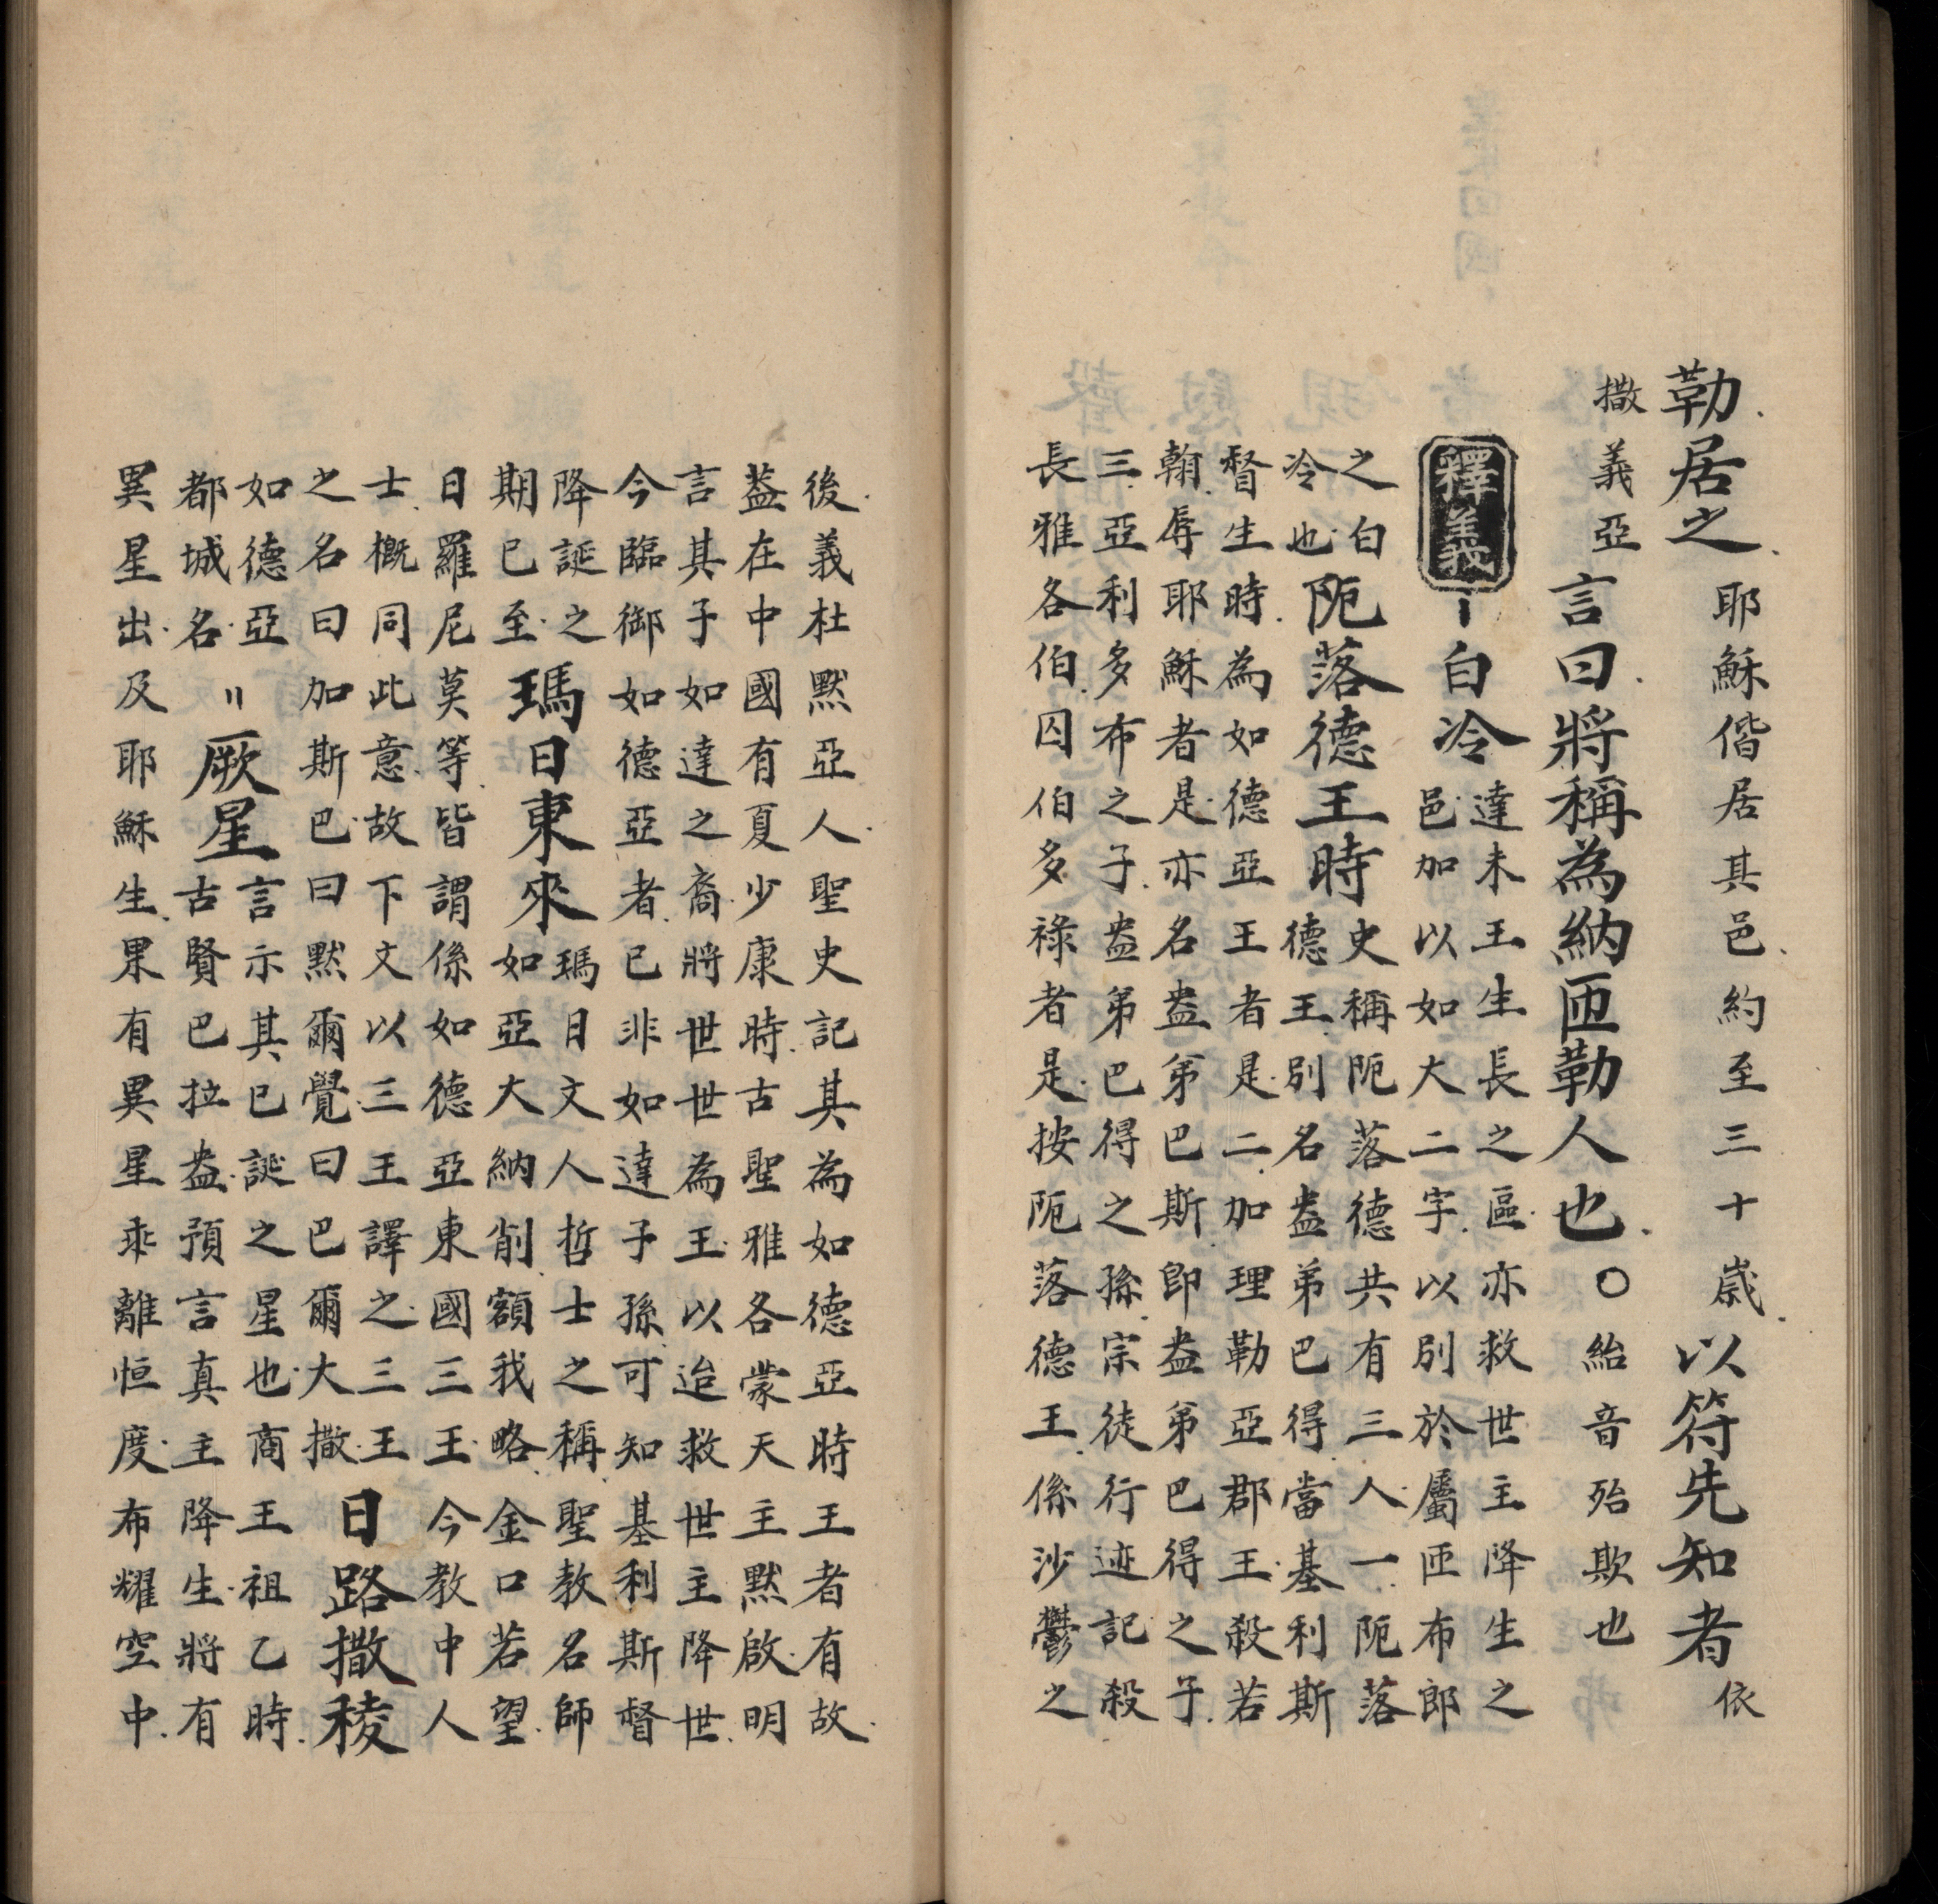 勒.居之.耶穌偕居其邑.約至三十歲.以符先知者依
撒義亞言曰.將稱為納匝勒人也.○紿音殆欺也
釋義 一白冷達未王生長之區.亦救世主降生之
邑.加以如大二字.以別於屬匝布郎
之白
冷也.阨落德王時史稱阨落德共有三人.一阨落
德王.別名盎弟巴得.當基利斯
督生時.為如德亞王者是.二.加理勒亞郡王.殺若
翰.辱耶穌者是.亦名盎弟巴斯即盎弟巴得之子.
三.亞利多布之子.盎弟巴得之孫.宗徒行迹記.殺
長雅各伯.囚伯多祿者是.按阨落德王.係沙鬱之
後.義杜默亞人.聖史記其為如德亞時王者有故.
葢在中國有夏少康時.古聖雅各蒙天主默啟.明
言其子如達之裔.將世世為王.以迨救世主降世.
今臨御如德亞者.已非如達子孫.可知基利斯督
降誕之
期已至.瑪日東來瑪日文人哲士之稱.聖教名師
如亞大納削.額我略.金口若望.
日羅尼莫等.皆謂係如德亞東國三王.今教中人
士.概同此意.故下文以三王譯之.三王
之名曰加斯巴.曰默爾覺.曰巴爾大撒.日路撒稜
如德亞
都城名.〃厥星言示其已誕之星也.商王祖乙時.
古賢巴拉盎.預言真主降生.將有
異星出.及耶穌生.果有異星乖離恒度.布耀空中.